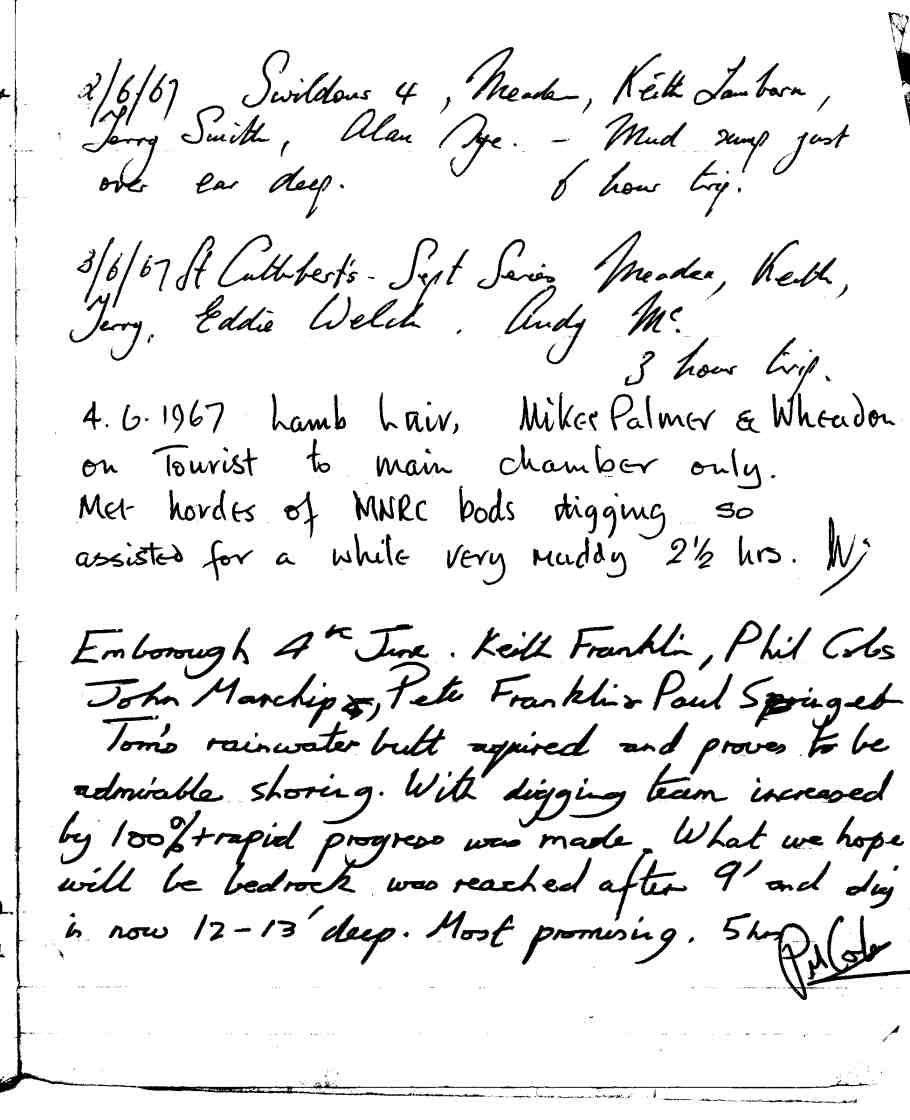 2/6/67 Swildons 4, Meaden, Keith Lamborn,
Terry Smith, Alan Dye. - Mud sump just
over ear deep. 6 hour trip.
3/6/67 St Cuthbert's - Sept Series Meaden, Keith,
Terry, Eddie Welch. Andy Mc.
3 hour trip.
4.6.1967 Lamb Lair, Mike Palmer & Wheadon
on Tourist to main chamber only.
Met hordes of MNRC bods digging so
assisted for a while very muddy 2½ hrs. W
Emborough 4th June. Keith Franklin, Phil Coles
John Manchip, Pete Franklin & Paul Springet
Tom's rainwater butt aquired and proves to be
admirable shoring. With digging team increased
by 100% + rapid progress was made. What we hope
will be bedrock was reached after 9' and dig
is now 12-13' deep. Most promising. 5 hrs
PM Coles